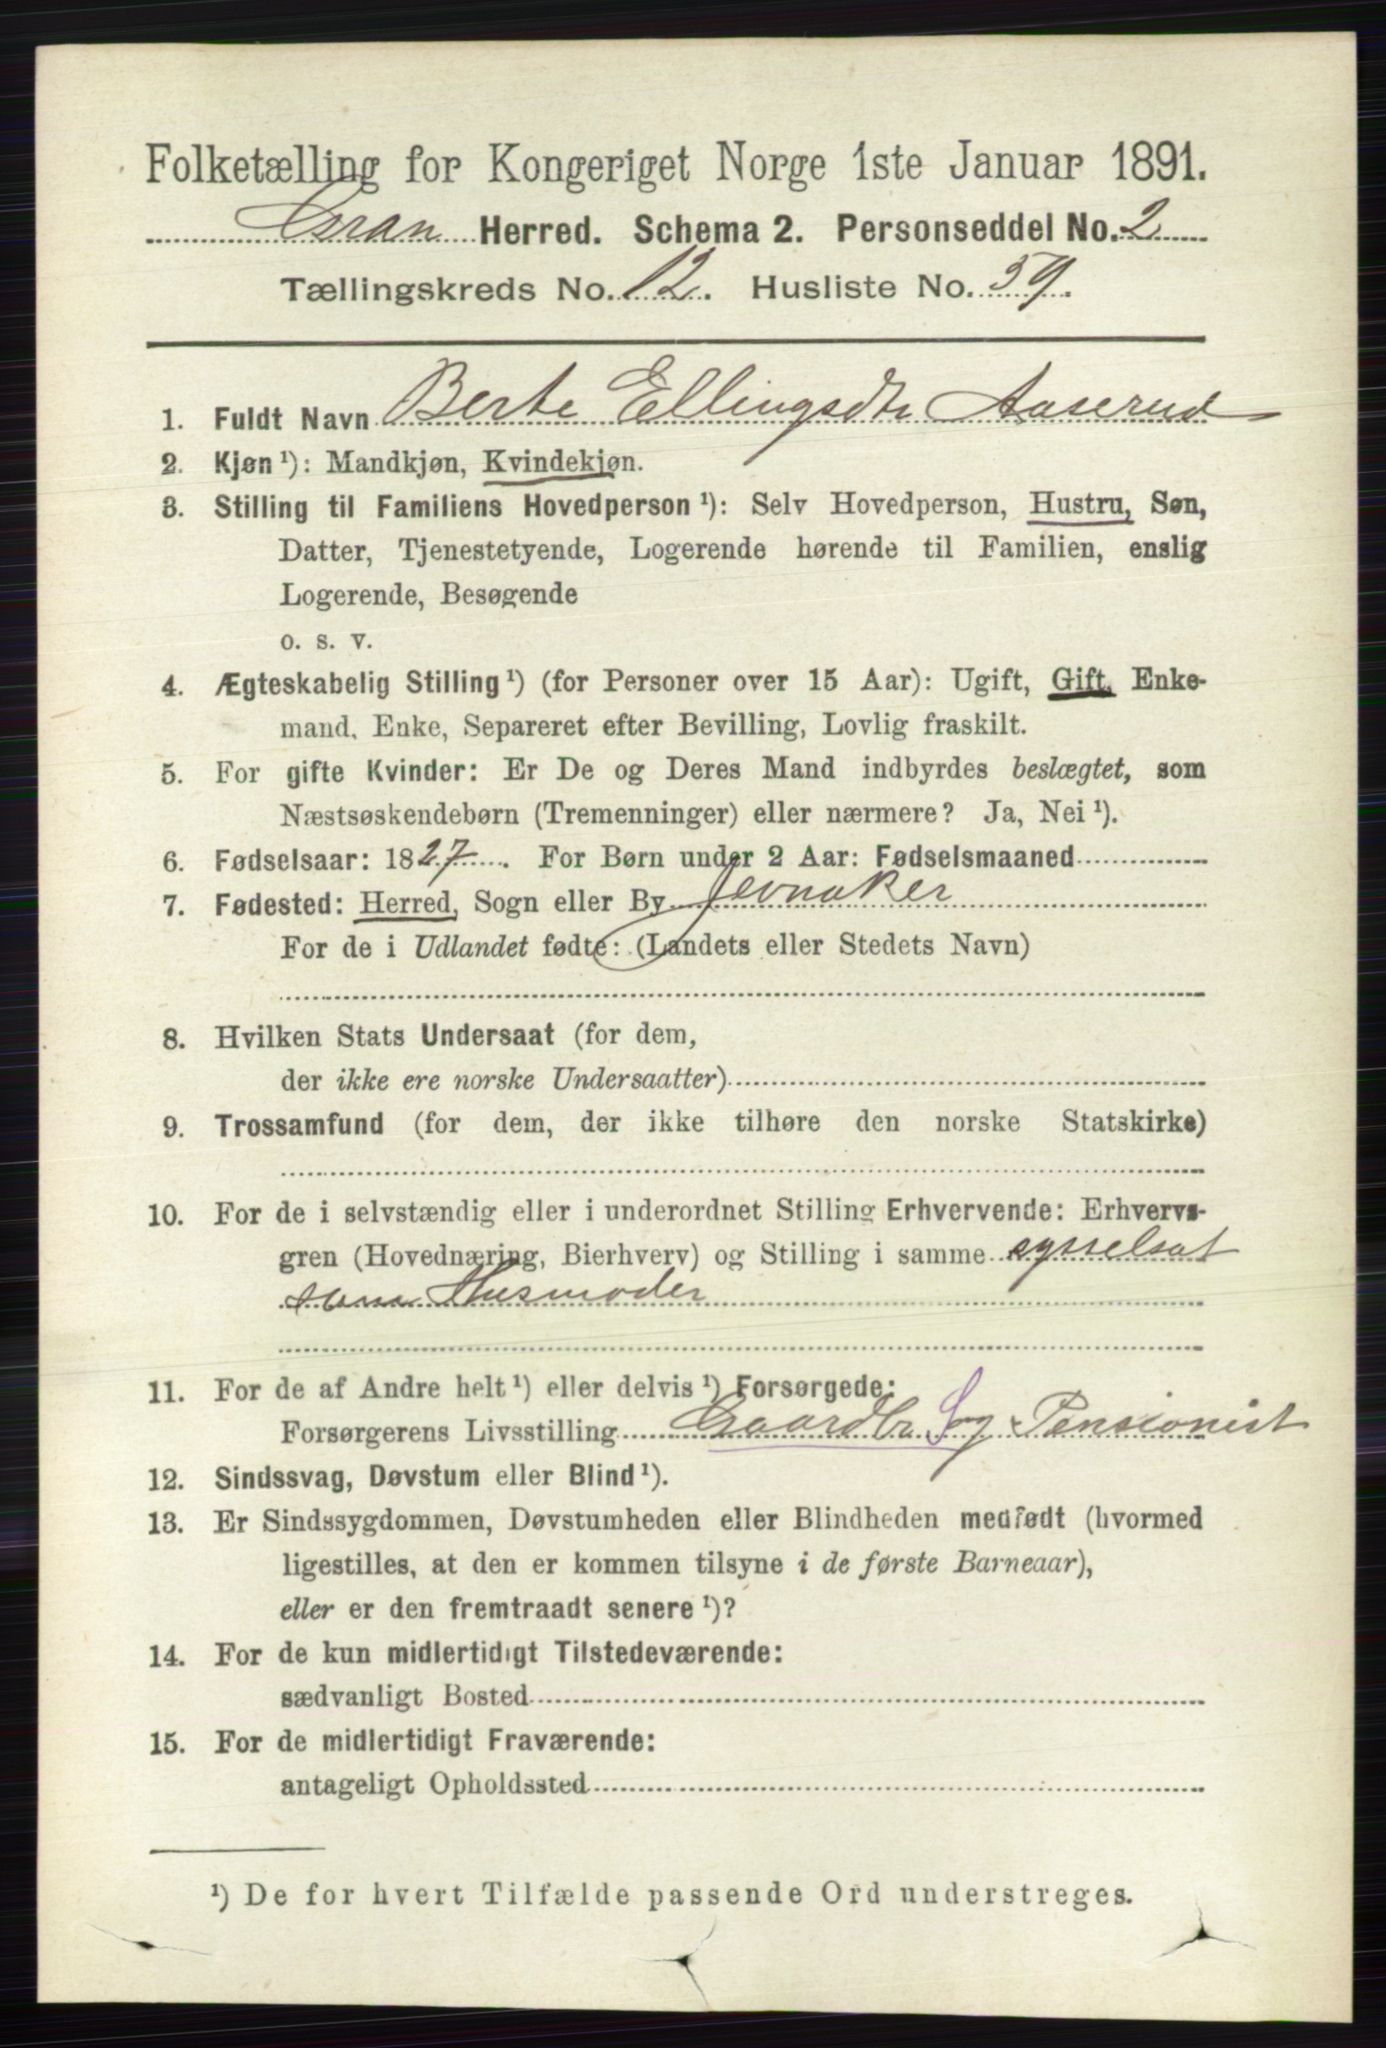 Folketælling for Kongeriget Norge 1ste Januar 1891.
Gran Herred. Schema 2. Personseddel No. 2
Tællingskreds No. 12. Husliste No. 59.
1. Fuldt Navn Berte Ellingsdtr Aaserud
2. Kjøn ¹): Mandkjøn, Kvindekjøn.
3. Stilling til Familiens Hovedperson ¹): Selv Hovedperson, Hustru, Søn,
Datter, Tjenestetyende, Logerende hørende til Familien, enslig
Logerende, Besøgende
o. s. v.
4. Ægteskabelig Stilling ¹) (for Personer over 15 Aar): Ugift, Gift, Enke-
mand, Enke, Separeret efter Bevilling, Lovlig fraskilt.
5. For gifte Kvinder: Er De og Deres Mand indbyrdes beslægtet, som
Næstsøskendebørn (Tremenninger) eller nærmere? Ja, Nei ¹).
6. Fødselsaar: 1827. For Børn under 2 Aar: Fødselsmaaned
7. Fødested: Herred, Sogn eller By Jevnaker
For de i Udlandet fødte: (Landets eller Stedets Navn)
8. Hvilken Stats Undersaat (for dem,
der ikke ere norske Undersaatter)
9. Trossamfund (for dem, der ikke tilhøre den norske Statskirke)
10. For de i selvstændig eller i underordnet Stilling Erhvervende: Erhvervs-
gren (Hovednæring, Bierhverv) og Stilling i samme sysselsat
som Husmoder
11. For de af Andre helt ¹) eller delvis ¹) Forsørgede:
Forsørgerens Livsstilling Gaardbr S og Pensionist
12. Sindssvag, Døvstum eller Blind ¹).
13. Er Sindssygdommen, Døvstumheden eller Blindheden medfødt (hvormed
ligestilles, at den er kommen tilsyne i de første Barneaar),
eller er den fremtraadt senere ¹)?
14. For de kun midlertidigt Tilstedeværende:
sædvanligt Bosted
15. For de midlertidigt Fraværende:
antageligt Opholdssted
¹) De for hvert Tilfælde passende Ord understreges.